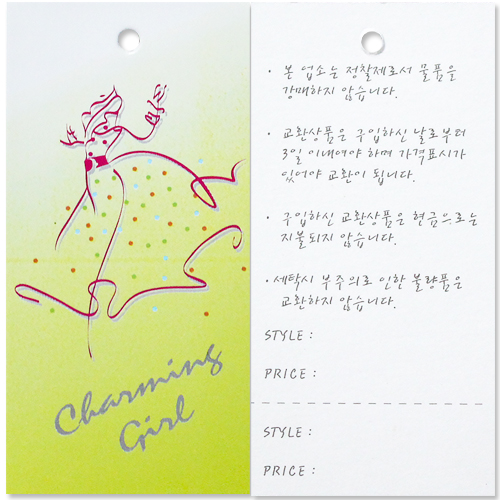 Charming
Girl
· 본 업소는 정찰제로서 물품은
강매하지 않습니다.
· 교환상품은 구입하신 날로부터
3일 이내여야 하며 가격표시가
있어야 교환이 됩니다.
· 구입하신 교환상품은 현금으로는
지불되지 않습니다.
· 세탁시 부주의로 인한 불량품은
교환하지 않습니다.
STYLE :
PRICE :
STYLE :
PRICE :